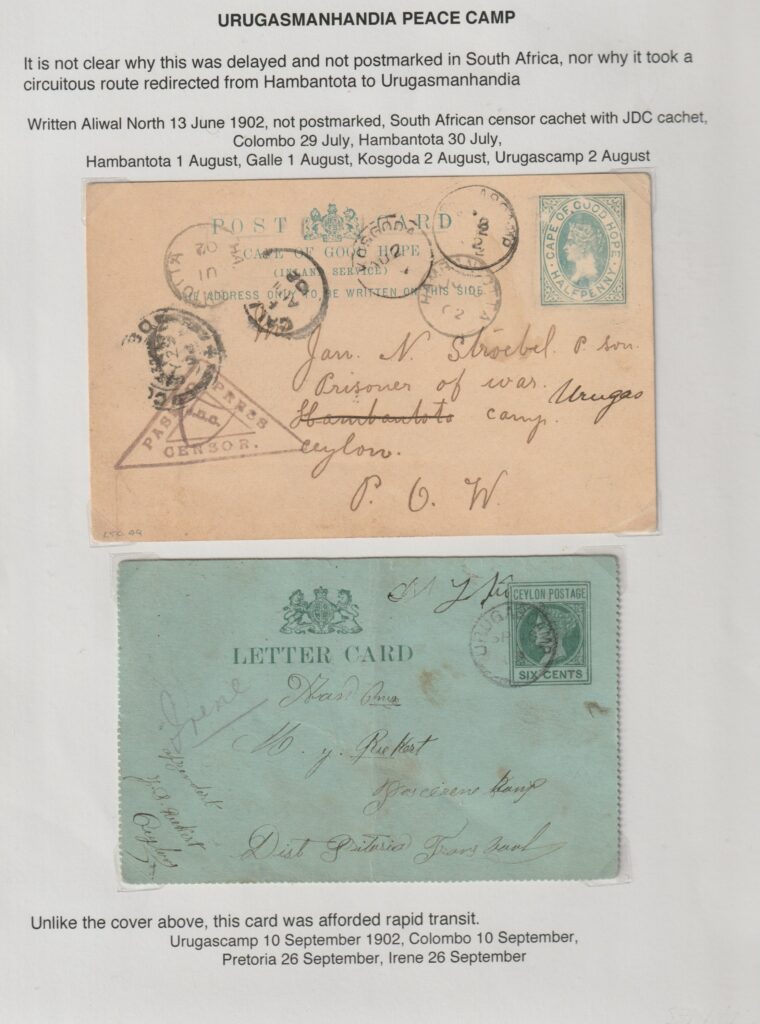 URUGASMANHANDIA PEACE CAMP
It is not clear why this was delayed and not postmarked in South Africa, nor why it took a
circuitous route redirected from Hambantota to Urugasmanhandia
Written Aliwal North 13 June 1902, not postmarked, South African censor cachet with JDC cachet,
Colombo 29 July, Hambantota 30 July,
Hambantota 1 August, Galle 1 August, Kosgoda 2 August, Urugascamp 2 August
POST CARD
CAPE OF GOOD HOPE
(INLAND SERVICE)
THE ADDRESS ONLY TO BE WRITTEN ON THIS SIDE
CAPE OF GOOD HOPE
HALFPENNY
KOSGODA
Jan. N. Stroebel. P. son.
Prisoner of war.
Hambantota camp. Urugas
Ceylon.
P. O. W.
PASSED PRESS
CENSOR.
LETTER CARD
CEYLON POSTAGE
SIX CENTS
Irene
M. y. Riekert
Dist Pritoria Trans vaal
Ceylon
Unlike the cover above, this card was afforded rapid transit.
Urugascamp 10 September 1902, Colombo 10 September,
Pretoria 26 September, Irene 26 September